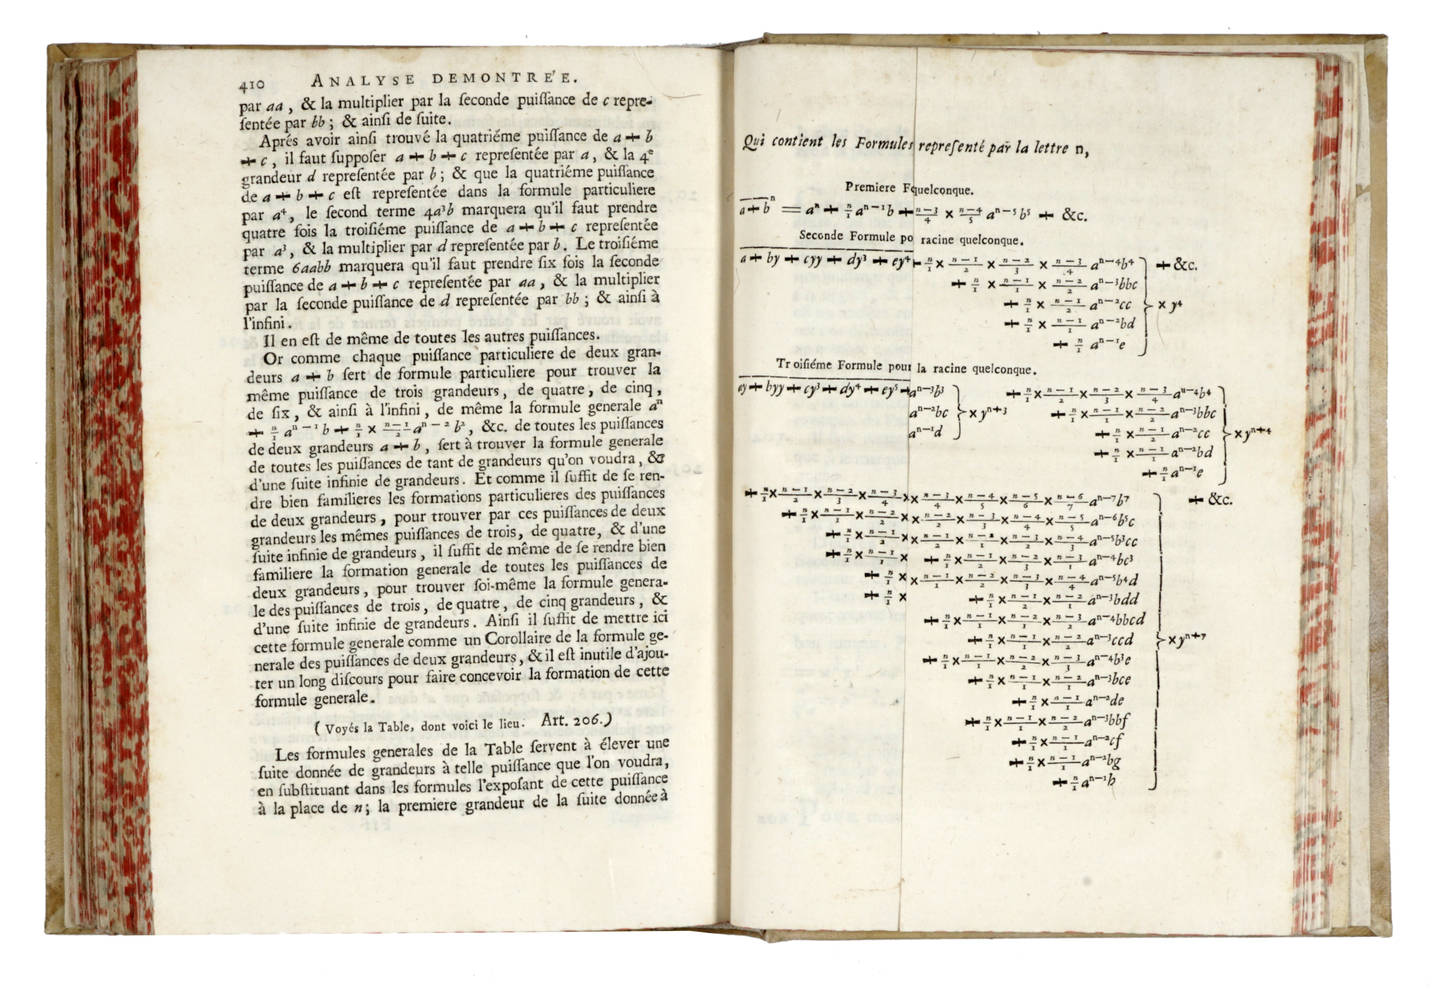 410 ANALYSE DEMONTRE'E.
par aa, & la multiplier par la ſeconde puiſſance de c repre-
ſentée par bb; & ainſi de ſuite.
Aprés avoir ainſi trouvé la quatriéme puiſſance de a + b
+ c, il faut ſuppoſer a + b + c repreſentée par a, & la 4ᵉ
grandeur d repreſentée par b; & que la quatriéme puiſſance
de a + b + c eſt repreſentée dans la formule particuliere
par a⁴, le ſecond terme 4a³b marquera qu'il faut prendre
quatre fois la troiſiéme puiſſance de a + b + c repreſentée
par a³, & la multiplier par d repreſentée par b. Le troiſiéme
terme 6aabb marquera qu'il faut prendre ſix fois la ſeconde
puiſſance de a + b + c repreſentée par aa, & la multiplier
par la ſeconde puiſſance de d repreſentée par bb; & ainſi à
l'infini.
Il en eſt de même de toutes les autres puiſſances.
Or comme chaque puiſſance particuliere de deux gran-
deurs a + b ſert de formule particuliere pour trouver la
même puiſſance de trois grandeurs, de quatre, de cinq,
de ſix, & ainſi à l'infini, de même la formule generale aⁿ
+ n/1 aⁿ⁻¹b + n/1 × n−1/2 aⁿ⁻²b², &c. de toutes les puiſſances
de deux grandeurs a + b, ſert à trouver la formule generale
de toutes les puiſſances de tant de grandeurs qu'on voudra, &
d'une ſuite infinie de grandeurs. Et comme il ſuffit de ſe ren-
dre bien familieres les formations particulieres des puiſſances
de deux grandeurs, pour trouver par ces puiſſances de deux
grandeurs les mêmes puiſſances de trois, de quatre, & d'une
ſuite infinie de grandeurs, il ſuffit de même de ſe rendre bien
familiere la formation generale de toutes les puiſſances de
deux grandeurs, pour trouver ſoi-même la formule genera-
le des puiſſances de trois, de quatre, de cinq grandeurs, &
d'une ſuite infinie de grandeurs. Ainſi il ſuffit de mettre ici
cette formule generale comme un Corollaire de la formule ge-
nerale des puiſſances de deux grandeurs, & il eſt inutile d'ajou-
ter un long diſcours pour faire concevoir la formation de cette
formule generale.
(Voyés la Table, dont voici le lieu. Art. 206.)
Les formules generales de la Table ſervent à élever une
ſuite donnée de grandeurs à telle puiſſance que l'on voudra,
en ſubſtituant dans les formules l'expoſant de cette puiſſance
à la place de n; la premiere grandeur de la ſuite donnée à
Qui contient les Formules repreſenté par la lettre n,
Premiere F quelconque.
a + bⁿ = aⁿ + n/1 aⁿ⁻¹b + n−3/4 × n−4/5 aⁿ⁻⁵b⁵ + &c.
Seconde Formule po racine quelconque.
a + by + cyy + dy³ + ey⁴ + n/1 × n−1/2 × n−2/3 × n−3/4 aⁿ⁻⁴b⁴ + &c.
+ n/1 × n−1/1 × n−2/2 aⁿ⁻³bbc
+ n/1 × n−1/2 aⁿ⁻²cc × y⁴
+ n/1 × n−1/1 aⁿ⁻²bd
+ n/1 aⁿ⁻¹e
Troiſiéme Formule pour la racine quelconque.
ay + byy + cy³ + dy⁴ + ey⁵ + aⁿ⁻³b³ + n/1 × n−1/2 × n−2/3 × n−3/4 aⁿ⁻⁴b⁴
aⁿ⁻²bc × yⁿ⁺³ + n/1 × n−1/1 × n−2/2 aⁿ⁻³bbc
aⁿ⁻¹d + n/1 × n−1/2 aⁿ⁻²cc × yⁿ⁺⁴
+ n/1 × n−1/1 aⁿ⁻²bd
+ n/1 aⁿ⁻¹e
+ n/1 × n−1/2 × n−2/3 × n−3/4 × n−3/4 × n−4/5 × n−5/6 × n−6/7 aⁿ⁻⁷b⁷ + &c.
+ n/1 × n−1/1 × n−2/2 × n−2/2 × n−3/3 × n−4/4 × n−5/5 aⁿ⁻⁶b⁵c
+ n/1 × n−1/1 × n−1/2 × n−2/1 × n−3/2 × n−4/3 aⁿ⁻⁵b³cc
+ n/1 × n−1/1 × + n/1 × n−1/1 × n−2/2 × n−3/3 aⁿ⁻⁴bc³
+ n/1 × × n−1/1 × n−2/2 × n−3/3 × n−4/4 aⁿ⁻⁵b⁴d
+ n/1 × + n/1 × n−1/1 × n−2/2 aⁿ⁻³bdd
+ n/1 × n−1/1 × n−2/1 × n−3/2 aⁿ⁻⁴bbcd
+ n/1 × n−1/1 × n−2/2 aⁿ⁻³ccd × yⁿ⁺⁷
+ n/1 × n−1/1 × n−2/2 × n−3/3 aⁿ⁻⁴b³e
+ n/1 × n−1/1 × n−2/1 aⁿ⁻³bce
+ n/1 × n−1/1 aⁿ⁻²de
+ n/1 × n−1/1 × n−2/2 aⁿ⁻³bbf
+ n/1 × n−1/1 aⁿ⁻²cf
+ n/1 × n−1/1 aⁿ⁻²bg
+ n/1 aⁿ⁻¹h